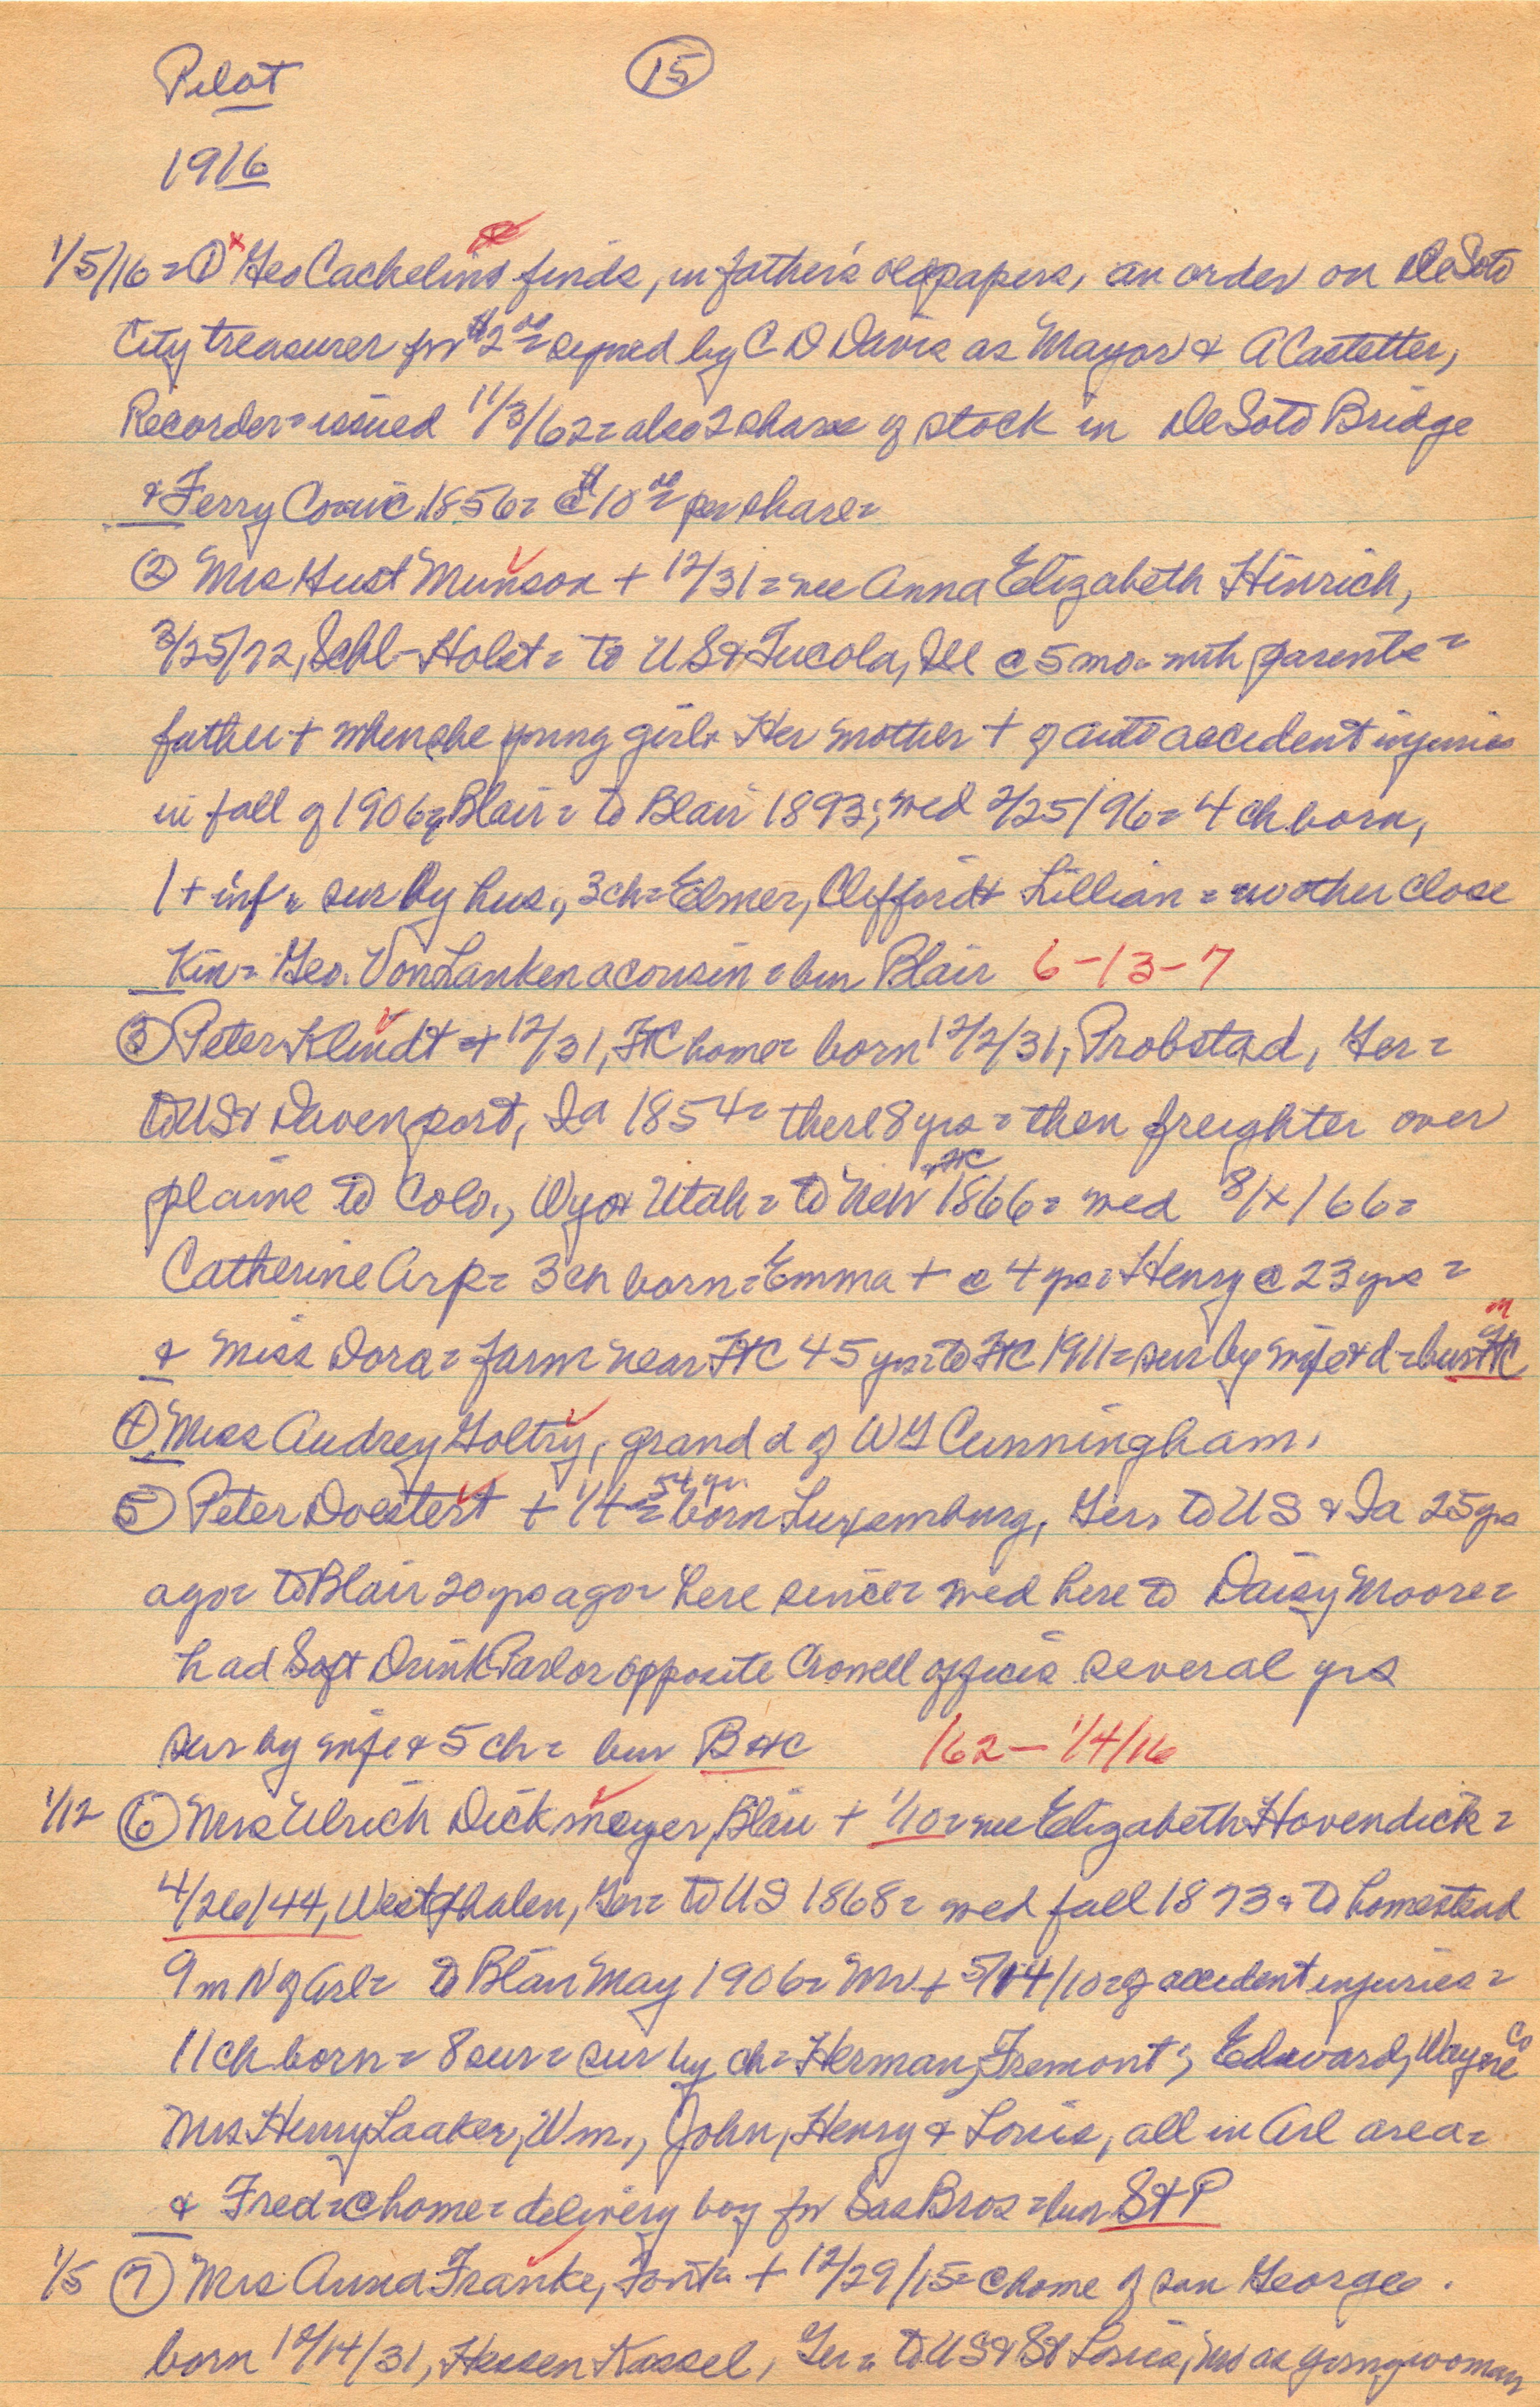 Pilot
15
1916
1/5/16 = ① Geo Cachelins finds, in father's old papers, an order on DeSoto
City treasurer for $2.00 = signed by C D Davis as Mayor & A Castetter,
Recorder = issued 11/3/62 = also 2 shares of stock in DeSoto Bridge
& Ferry Co = inc. 1856 = @ $10.00 per share =
② Mrs Gust Munson + 12/31 = nee Anna Elizabeth Hinrich,
3/25/72, Schl-Holst = to US & Tucola, Ill @ 5 mo = with parents =
father + when she young girl. Her mother + of auto accident injuries
in fall of 1906 = Blair = to Blair 1893; wed 2/25/96 = 4 ch born,
1 + inf = sur by hus., 3 ch = Elmer, Clifford & Lillian = no other close
Kin = Geo. VonLanken a cousin = bur Blair 6-13-7
③ Peter Klindt + 12/31, FtC home = born 12/2/31, Probstad, Ger =
to US & Davenport, Ia 1854 = there 8 yrs = then freighter over
plains to Colo., Wyo & Utah = to New FtC 1866 = wed 8/x/66 =
Catherine Arp = 3 ch born = Emma + @ 4 yrs = Henry @ 23 yrs =
& Miss Dora = farm near FtC 45 yrs = to FtC 1911 = sur by wife & d = bur FtC
④ Miss Audrey Goltry, grand d of W G Cunningham.
⑤ Peter Doestert + 1/4 = 54 yr. = born Luxemburg, Ger. to US & Ia 25 yrs
ago = to Blair 20 yrs ago = here since = wed here to Daisy Moore =
had Soft Drink Parlor opposite Crowell offices several yrs
sur by wife & 5 ch = bur B#C 162 - 1/4/16
1/12 ⑥ Mrs Ulrich Dickmeyer, Blair + 1/10 = nee Elizabeth Hovendick =
4/26/44, Westphalen, Ger = to US 1868 = wed fall 1873 = to homestead
9 m N of Arl = to Blair May 1906 = Mr + 5/14/10 = of accident injuries =
11 ch born = 8 sur = sur by ch = Herman, Fremont; Edward, Wayne Co
Mrs Henry Laaker, Wm., John, Henry & Louis, all in Arl area =
& Fred = @ home = delivery boy for Sas Bros = bur St P
1/5 ⑦ Mrs Anna Franke, Font. + 12/29/15 = @ home of son George.
born 12/14/31, Hessen Kassel, Ger = to US & St Louis, Mo as young woman